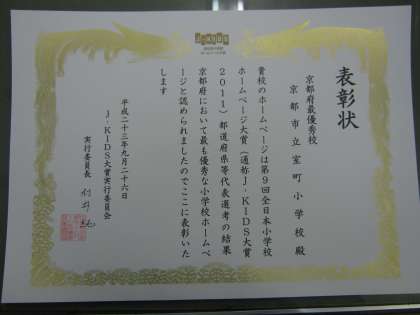 J-KIDS
表彰状
京都府最優秀校
京都市立室町小学校殿
貴校のホームページは第9回全日本小学校
ホームページ大賞(通称J-KIDS大賞
2011)都道府県等代表選考の結果
京都府において最も優秀な小学校ホームペ
ージと認められましたのでここに表彰いた
します
平成二十三年九月二十六日
J-KIDS大賞実行委員会
実行委員長